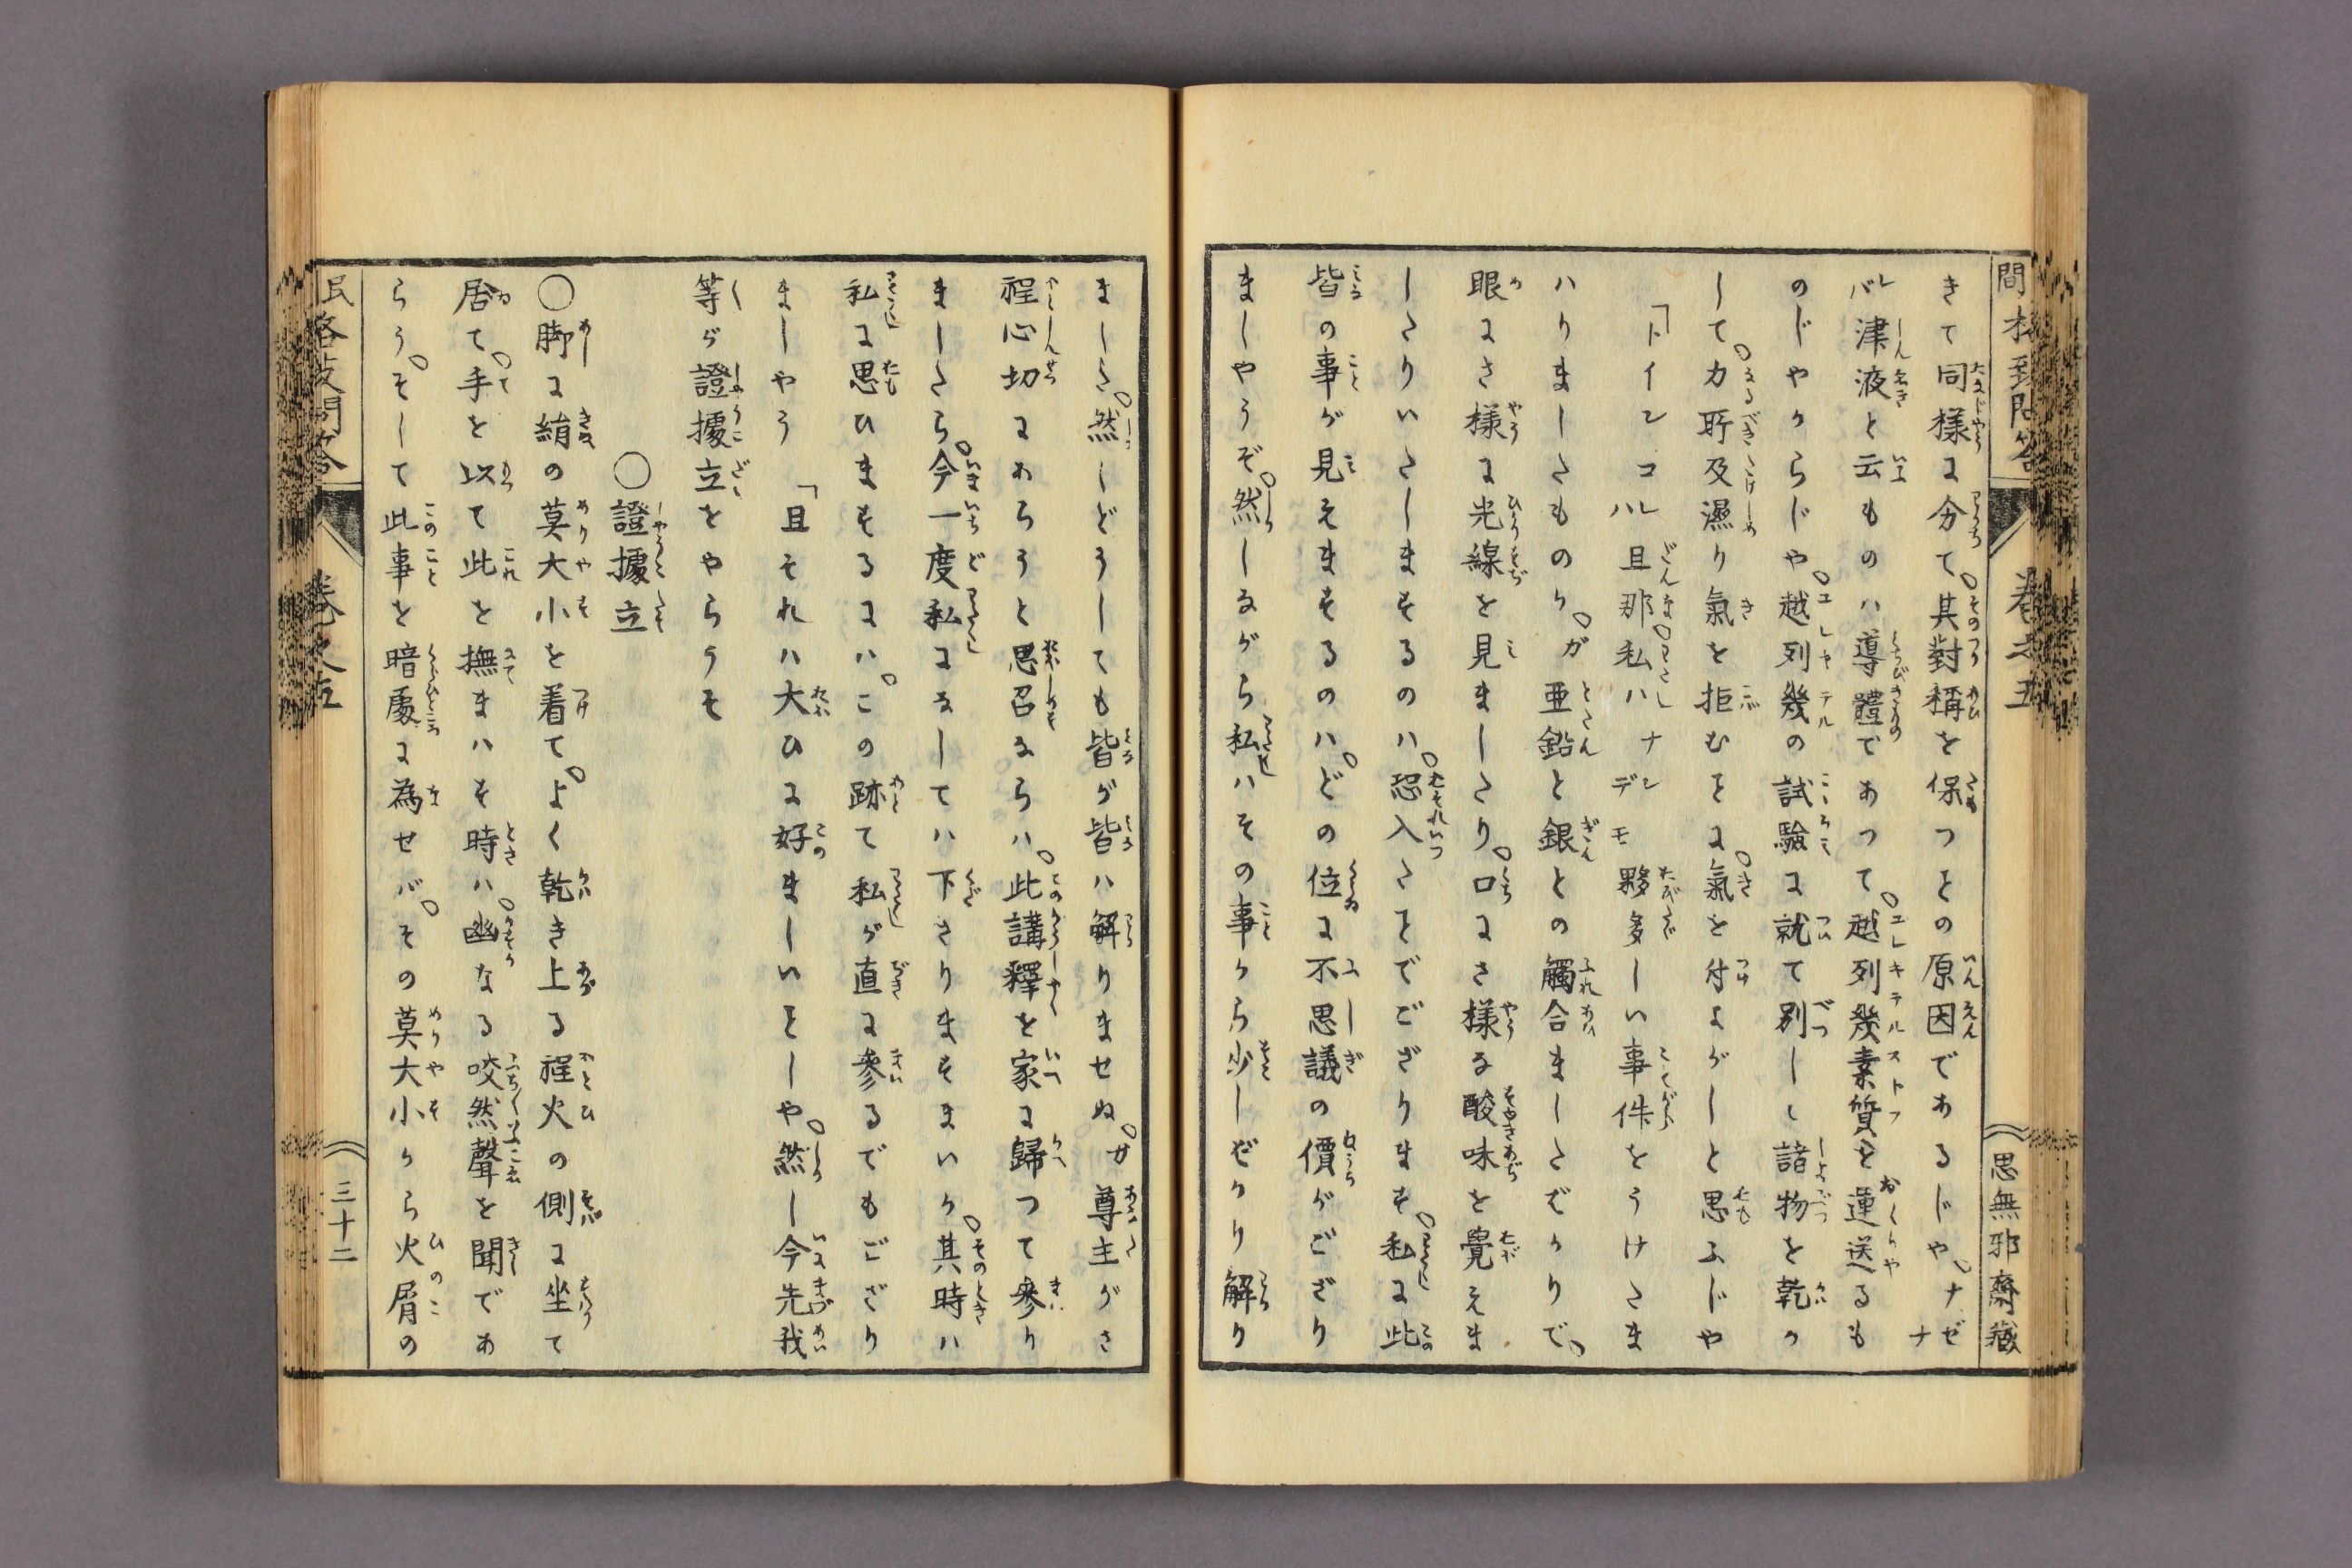 きて同様に分て。其對稱を保つとの原因であるじや。ナゼナ
レバ津液と云ものハ導體であつて。越列幾素質を運送るも
のじやからじや。越列幾の試驗に就て別して諸物を乾か
して。力所及濕り氣を拒むとに。氣を付よがしと思ふじや
「トイレコレハ旦那。私ハナンデモ夥多しい事件をうけたま
ハりましたものり。が亜鉛と銀との觸合ましたばかりで。
眼にさ様に光線を見ましたり。口にさ様な酸味を覺えま
したりいたしまするのハ。恐入たとでござります。私に此
皆の事が見えまするのハ。どの位に不思議の價がござり
ましやうぞ。然しながら私ハその事から少しばかり解り
ました。然しどうしても皆が皆ハ解りませぬ。が尊主がさ
程心切にあらうと思召ならハ。此講釋を家に歸つて參り
ましたら。今一度私になしてハ下さりますまいか。其時ハ
私に思ひまするにハ。この跡て私が直に參るでもござり
ましやう「且それハ大ひに好ましいとしや。然し今先我
等が證據立をやらうそ
○證據立
○脚に絹の莫大小を着て。よく乾き上る程火の側に坐て
居て。手を以て此を撫まハす時ハ。幽なる咬然聲を聞であ
らう。そして此事を暗處に為せバ。その莫大小から火屑の
思無邪齋藏
三十二